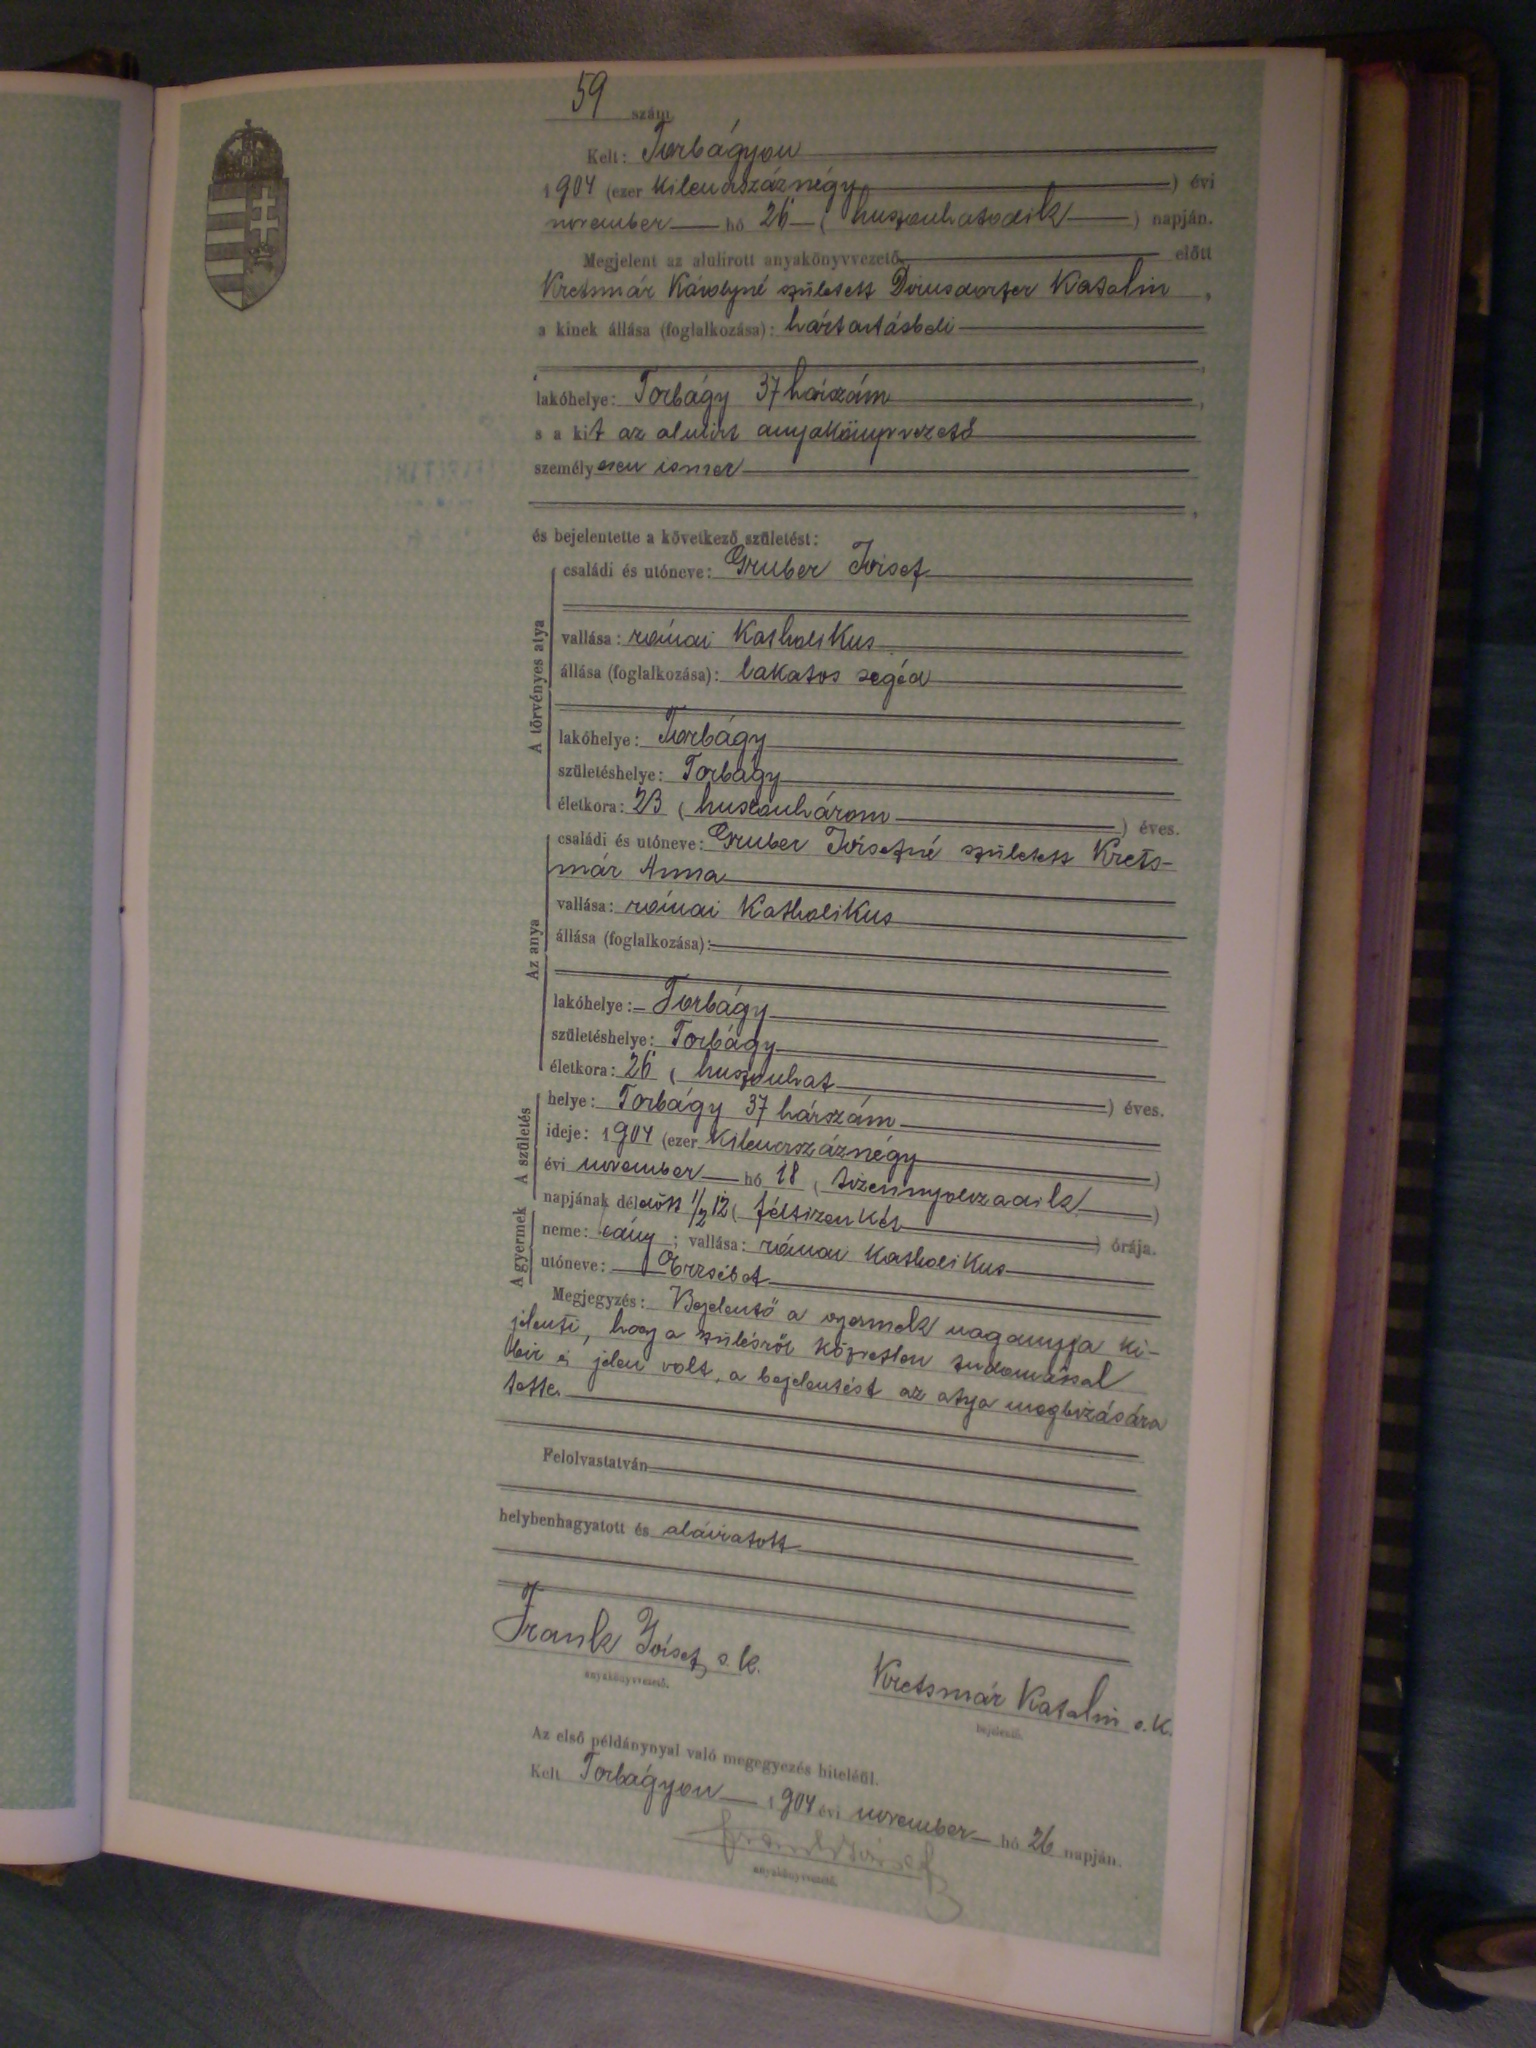 59 szám
Kelt: Torbágyon
1904 (ezer kilencszáznégy) évi
november hó 26 (huszonhatodik) napján.
Megjelent az alulirott anyakönyvvezető előtt
Kretsmár Károlyné született Katalin,
a kinek állása (foglalkozása): háztartásbeli
,
lakóhelye: Torbágy 37 házszám,
s a kit az alulirt anyakönyvvezető
személyesen ismer
,
és bejelentette a következő születést:
A törvényes atya
családi és utóneve: Gruber József
vallása: római katholikus
állása (foglalkozása): lakatos segéd
lakóhelye: Torbágy
születéshelye: Torbágy
életkora: 23 (huszonhárom) éves.
Az anya
családi és utóneve: Gruber Józsefné született Krets-
már Anna
vallása: római katholikus
állása (foglalkozása):
lakóhelye: Torbágy
születéshelye: Torbágy
életkora: 26 (huszonhat) éves.
A születés
helye: Torbágy 37 házszám
ideje: 1904 (ezer kilencszáznégy)
évi november hó 18 (tizennyolczadik)
napjának délelőtt 1/2 12 (féltizenkét) órája.
A gyermek
neme: leány; vallása: római katholikus
utóneve: Erzsébet
Megjegyzés: Bejelentő a gyermek nagyanyja ki-
jelenti, hogy a szülésről közvetlen tudomással
bir és jelen volt, a bejelentést az atya megbizására
tette.
Felolvastatván
helybenhagyatott és aláiratott
Frank József s. k.
anyakönyvvezető.
Kretsmár Katalin s. k.
bejelentő.
Az első példánynyal való megegyezés hiteléül.
Kelt Torbágyon 1904 évi november hó 26 napján.
Frank József
anyakönyvvezető.